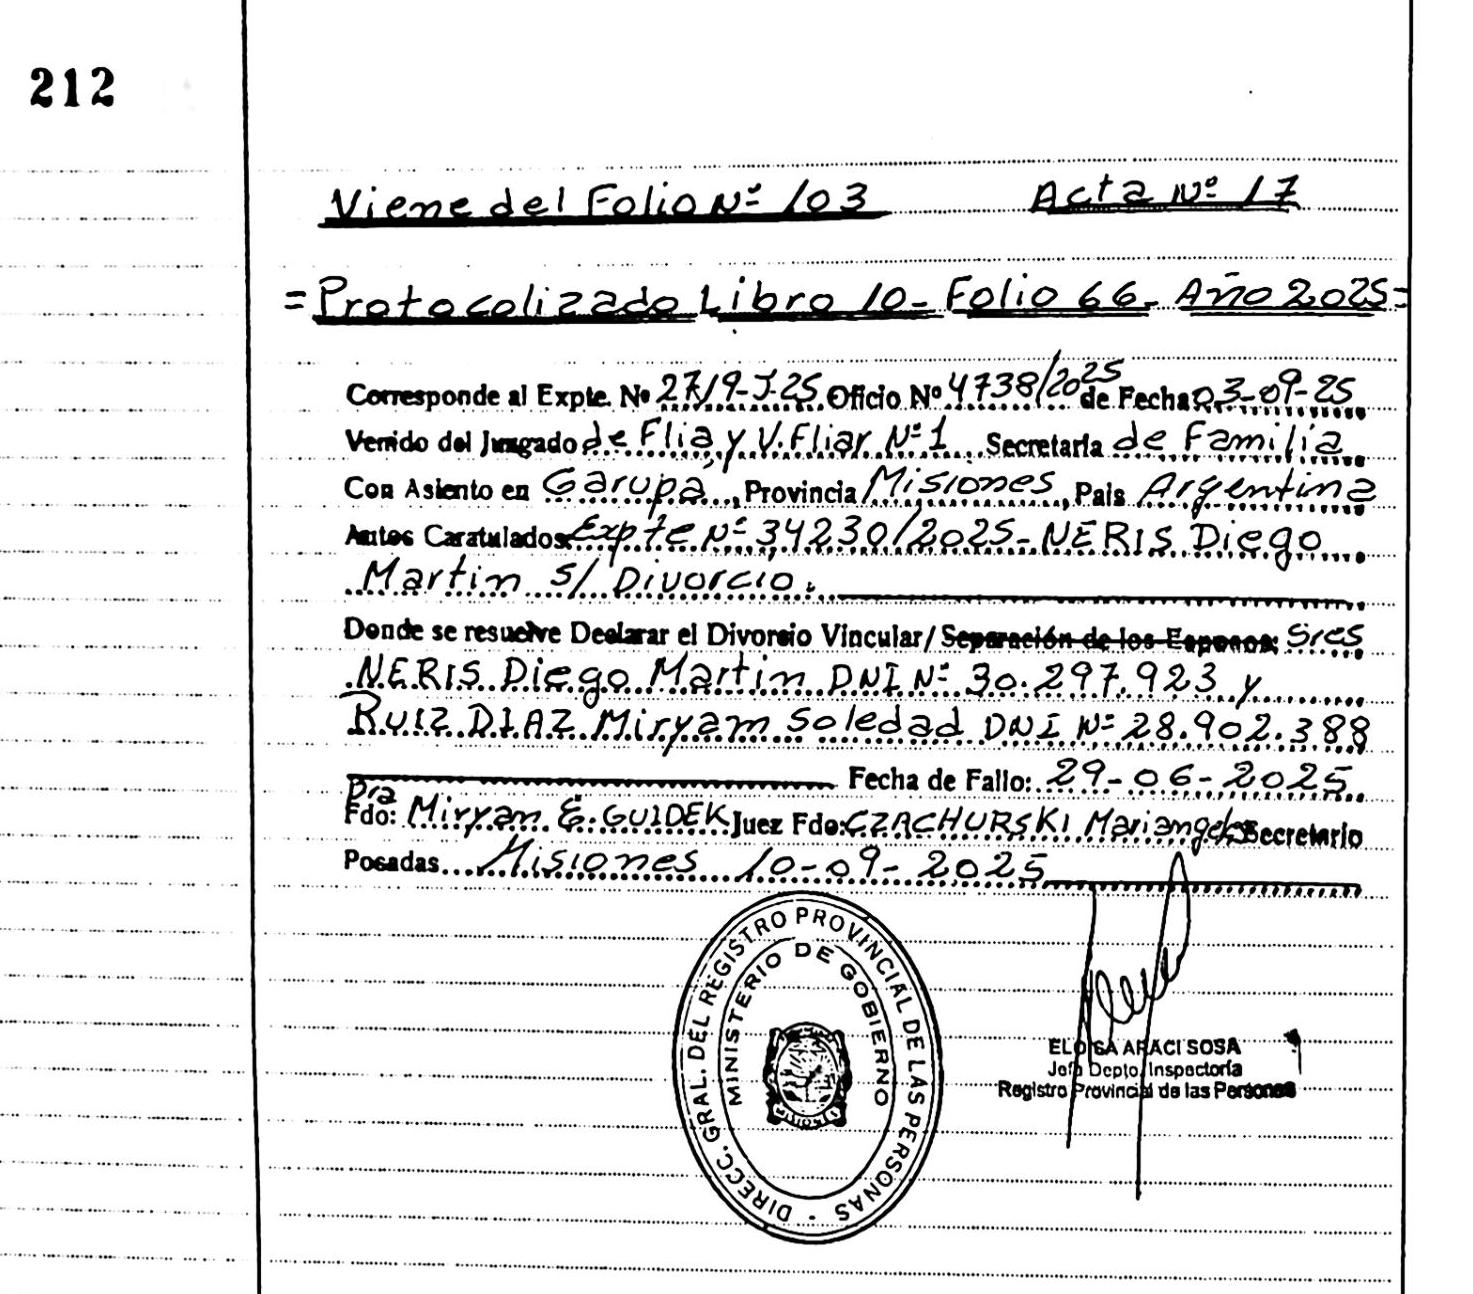 212
Viene del Folio Nº 103 Acta Nº 17
=Protocolizado Libro 10- Folio 66- Año 2025=
Corresponde al Expte. Nº 2719-J-25 Oficio Nº 4738/2025 de Fecha 03-09-25
Venido del Juzgado de Flia y V. Fliar Nº 1 Secretaria de Familia
Con Asiento en Garupá, Provincia Misiones, País Argentina
Autos Caratulados: Expte Nº 34230/2025- NERIS Diego
Martin s/ Divorcio.
Donde se resuelve Declarar el Divorcio Vincular/ Separación de los Esposos: Sres
NERIS Diego Martin DNI Nº 30.297.923 y
RUIZ DIAZ Miryam Soledad DNI Nº 28.902.388
Fecha de Fallo: 29-06-2025
Dra
Fdo: Miryam E. GUIDEK Juez Fdo: CZACHURSKI Mariangeles Secretario
Posadas... Misiones 10-09-2025
DIRECC. GRAL. DEL REGISTRO PROVINCIAL DE LAS PERSONAS -
MINISTERIO DE GOBIERNO
ELOISA ARACI SOSA
Jefa Dcpto. Inspectoría
Registro Provincial de las Personas